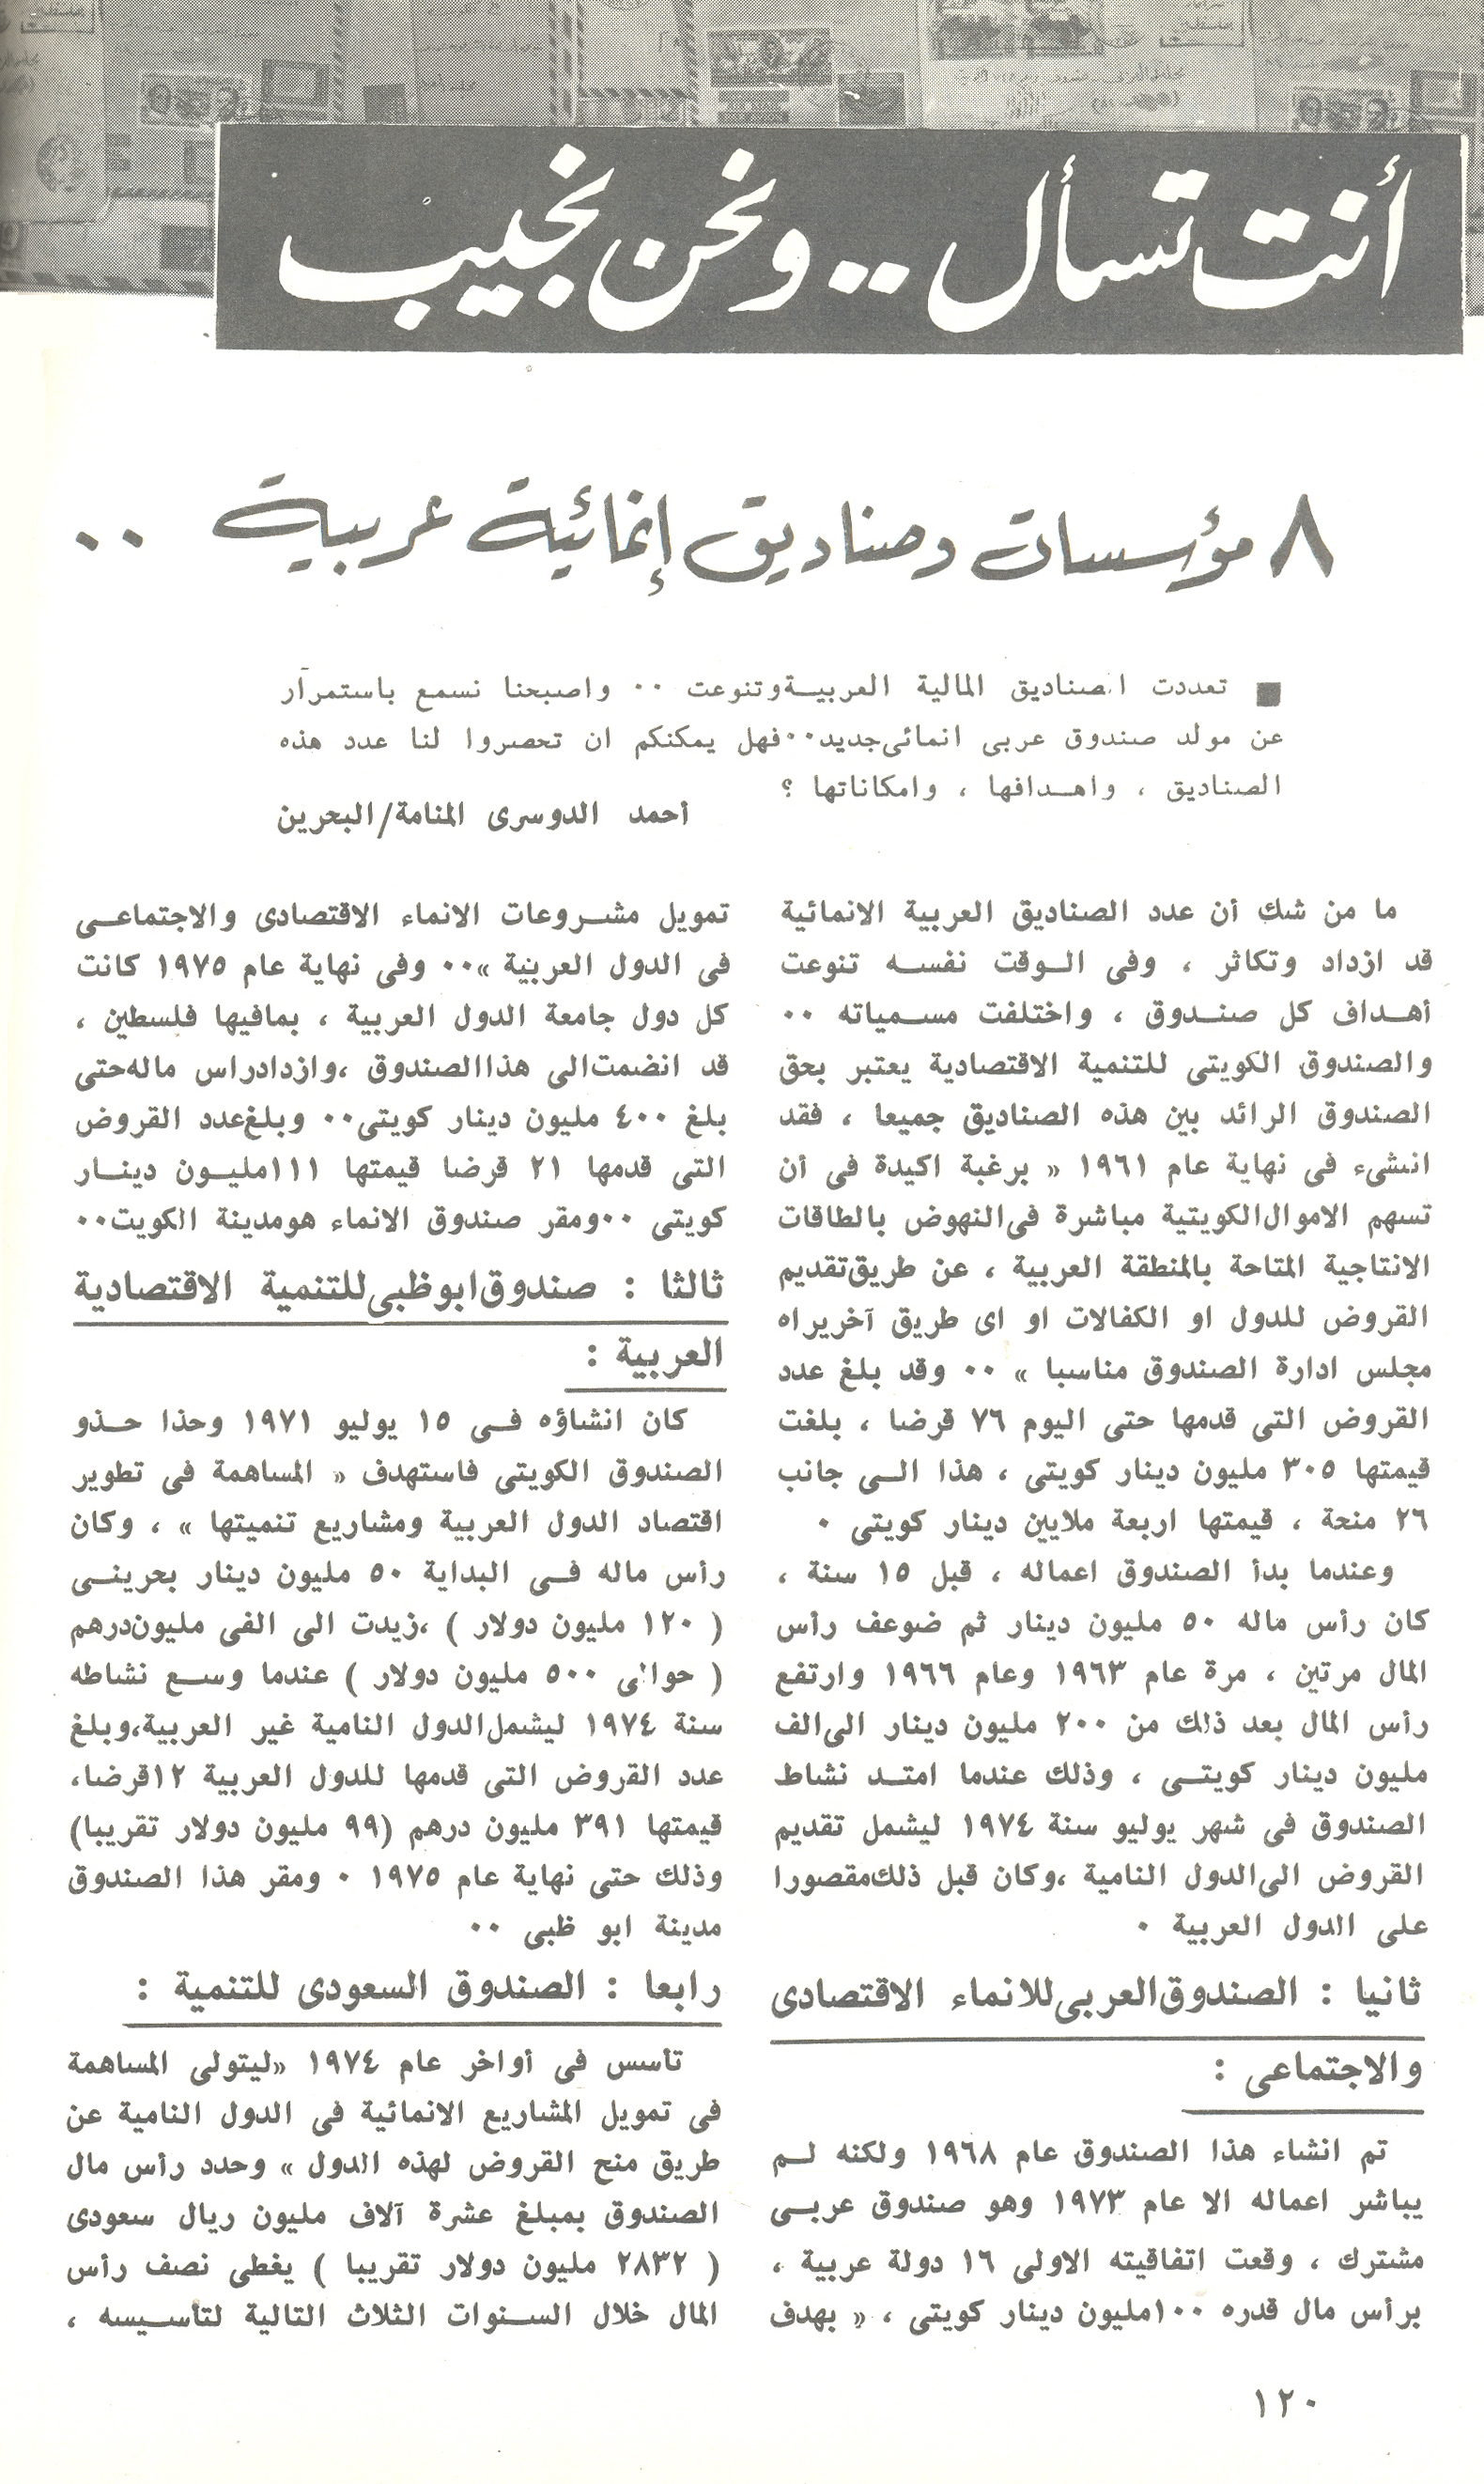 أنت تسأل .. ونحن نجيب
٨ مؤسسات وصناديق إنمائية عربية ..
■ تعددت الصناديق المالية العربية وتنوعت ٠٠ واصبحنا نسمع باستمرار
عن مولد صندوق عربى انمائى جديد ٠٠ فهل يمكنكم ان تحصروا لنا عدد هذه
الصناديق ، واهـدافها ، وامكاناتها ؟
أحمد الدوسرى المنامة/البحرين
ما من شك أن عدد الصناديق العربية الانمائية
قد ازداد وتكاثر ، وفى الـوقت نفسـه تنوعت
أهـداف كل صنـدوق ، واختلفت مسـمياته ٠٠
والصندوق الكويتى للتنمية الاقتصادية يعتبر بحق
الصندوق الرائد بين هذه الصناديق جميعا ، فقد
انشىء فى نهاية عام ١٩٦١ « برغبة اكيدة فى أن
تسهم الاموال الكويتية مباشرة فى النهوض بالطاقات
الانتاجية المتاحة بالمنطقة العربية ، عن طريق تقديم
القروض للدول او الكفالات او اى طريق آخر يراه
مجلس ادارة الصندوق مناسبا » ٠٠ وقد بلغ عدد
القروض التى قدمها حتى اليوم ٧٦ قرضا ، بلغت
قيمتها ٣٠٥ مليون دينار كويتى ، هذا الـى جانب
٢٦ منحة ، قيمتها اربعة ملايين دينار كويتى ٠
وعندما بدأ الصندوق اعماله ، قبل ١٥ سنة ،
كان رأس ماله ٥٠ مليون دينار ثم ضوعف رأس
المال مرتين ، مرة عام ١٩٦٣ وعام ١٩٦٦ وارتفع
رأس المال بعد ذلك من ٢٠٠ مليون دينار الى الف
مليون دينار كويتـى ، وذلك عندما امتـد نشاط
الصندوق فى شهر يوليو سنة ١٩٧٤ ليشمل تقديم
القروض الى الدول النامية ، وكان قبل ذلك مقصورا
على الدول العربية ٠
ثانيا : الصندوق العربى للانماء الاقتصادى
والاجتماعى :
تم انشاء هذا الصندوق عام ١٩٦٨ ولكنه لـم
يباشر اعماله الا عام ١٩٧٣ وهو صندوق عربـى
مشترك ، وقعت اتفاقيته الاولى ١٦ دولة عربية ،
برأس مال قدره ١٠٠ مليون دينار كويتى ، « بهدف
تمويل مشـروعات الانماء الاقتصادى والاجتماعـى
فى الدول العربية » ٠٠ وفى نهاية عام ١٩٧٥ كانت
كل دول جامعة الدول العربية ، بمافيها فلسطين ،
قد انضمت الى هذا الصندوق ، وازداد راس ماله حتى
بلغ ٤٠٠ مليون دينار كويتى ٠٠ وبلغ عدد القروض
التى قدمها ٢١ قرضا قيمتها ١١١ مليـون دينـار
كويتى ٠٠ ومقر صندوق الانماء هو مدينة الكويت ٠٠
ثالثا : صندوق ابو ظبى للتنمية الاقتصادية
العربية :
كان انشاؤه فـى ١٥ يوليو ١٩٧١ وحذا حـذو
الصندوق الكويتى فاستهدف « المساهمة فى تطوير
اقتصاد الدول العربية ومشاريع تنميتها » ، وكان
رأس ماله فـى البداية ٥٠ مليون دينار بحرينـى
( ١٢٠ مليون دولار ) ، زيدت الى الفى مليون درهم
( حوالى ٥٠٠ مليون دولار ) عندما وسـع نشاطه
سنة ١٩٧٤ ليشمل الدول النامية غير العربية ، وبلغ
عدد القروض التى قدمها للدول العربية ١٢ قرضا ،
قيمتها ٣٩١ مليون درهم (٩٩ مليون دولار تقريبا)
وذلك حتى نهاية عام ١٩٧٥ ٠ ومقر هذا الصندوق
مدينة ابو ظبى ٠٠
رابعا : الصندوق السعودى للتنمية :
تأسس فى أواخر عام ١٩٧٤ «ليتولى المساهمة
فى تمويل المشاريع الانمائية فى الدول النامية عن
طريق منح القروض لهذه الدول » وحدد رأس مال
الصندوق بمبلغ عشرة آلاف مليون ريال سعودى
( ٢٨٣٢ مليون دولار تقريبا ) يغطى نصف رأس
المال خلال السـنوات الثلاث التالية لتأسـيسه ،
١٢٠